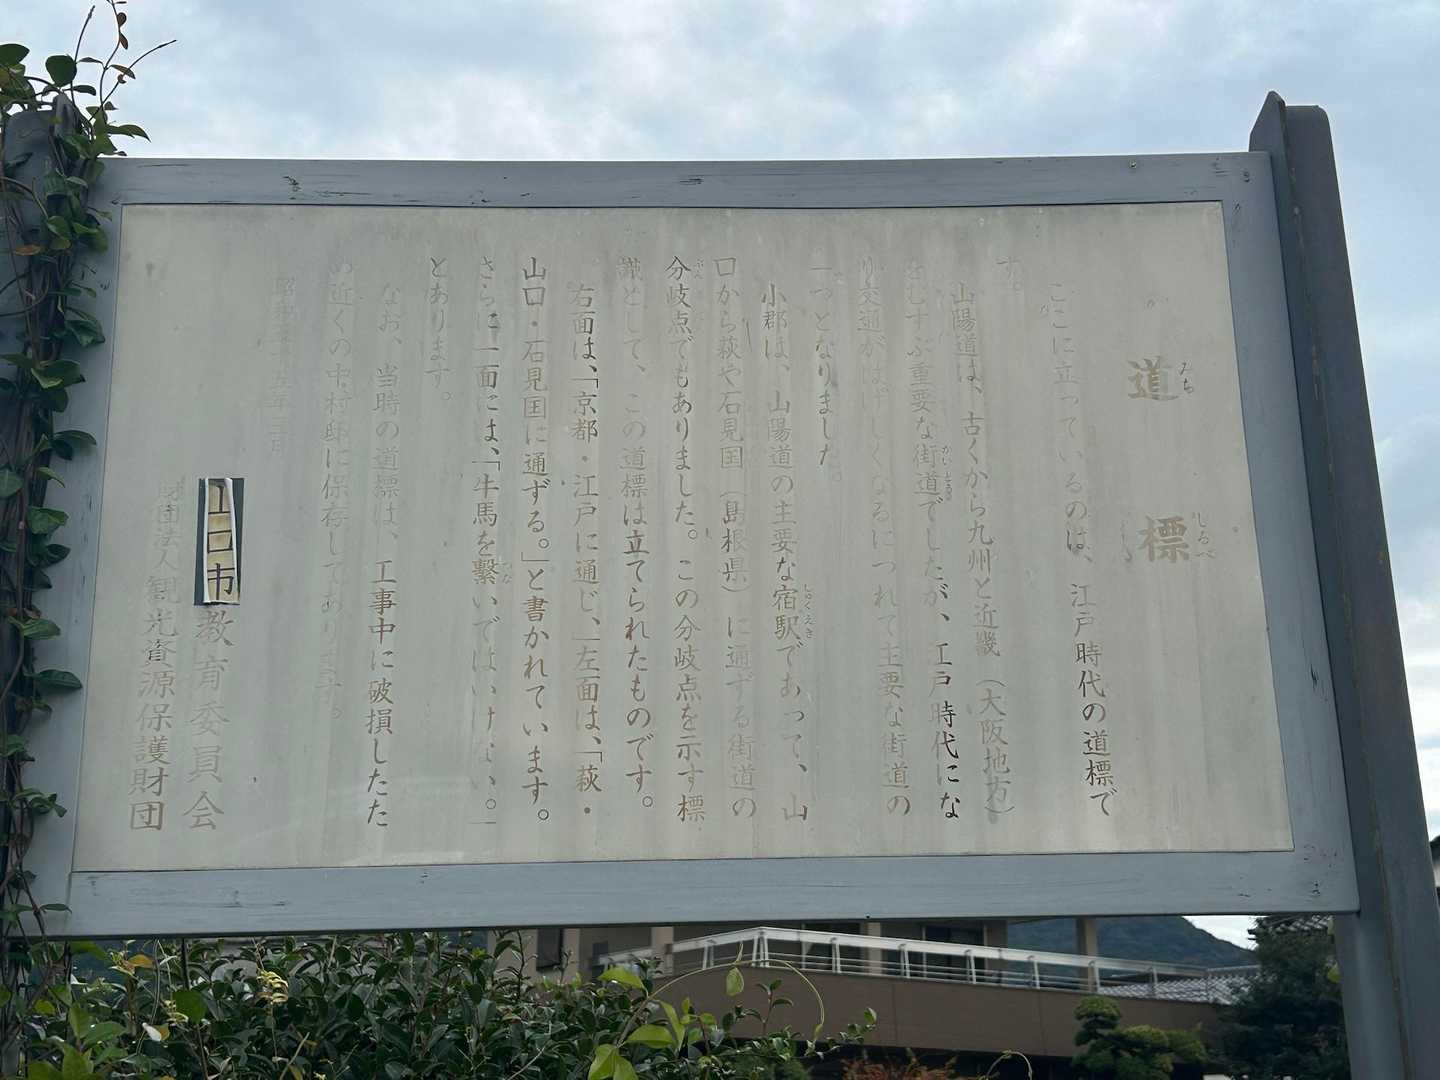 道標
みちしるべ
ここに立っているのは、江戸時代の道標で
す。
山陽道は、古くから九州と近畿(大阪地方)
をむすぶ重要な街道でしたが、江戸時代にな
かいどう
り交通がはげしくなるにつれて主要な街道の
一つとなりました。
小郡は、山陽道の主要な宿駅であって、山
しゅくえき
口から萩や石見国(島根県)に通ずる街道の
分岐点でもありました。この分岐点を示す標
識として、この道標は立てられたものです。
右面は、「京都・江戸に通じ、」左面は、「萩・
山口・石見国に通ずる。」と書かれています。
さらに一面には、「牛馬を繋いではいけない。」
つな
とあります。
なお、当時の道標は、工事中に破損したた
め近くの中村邸に保存してあります。
山口市教育委員会
財団法人観光資源保護財団